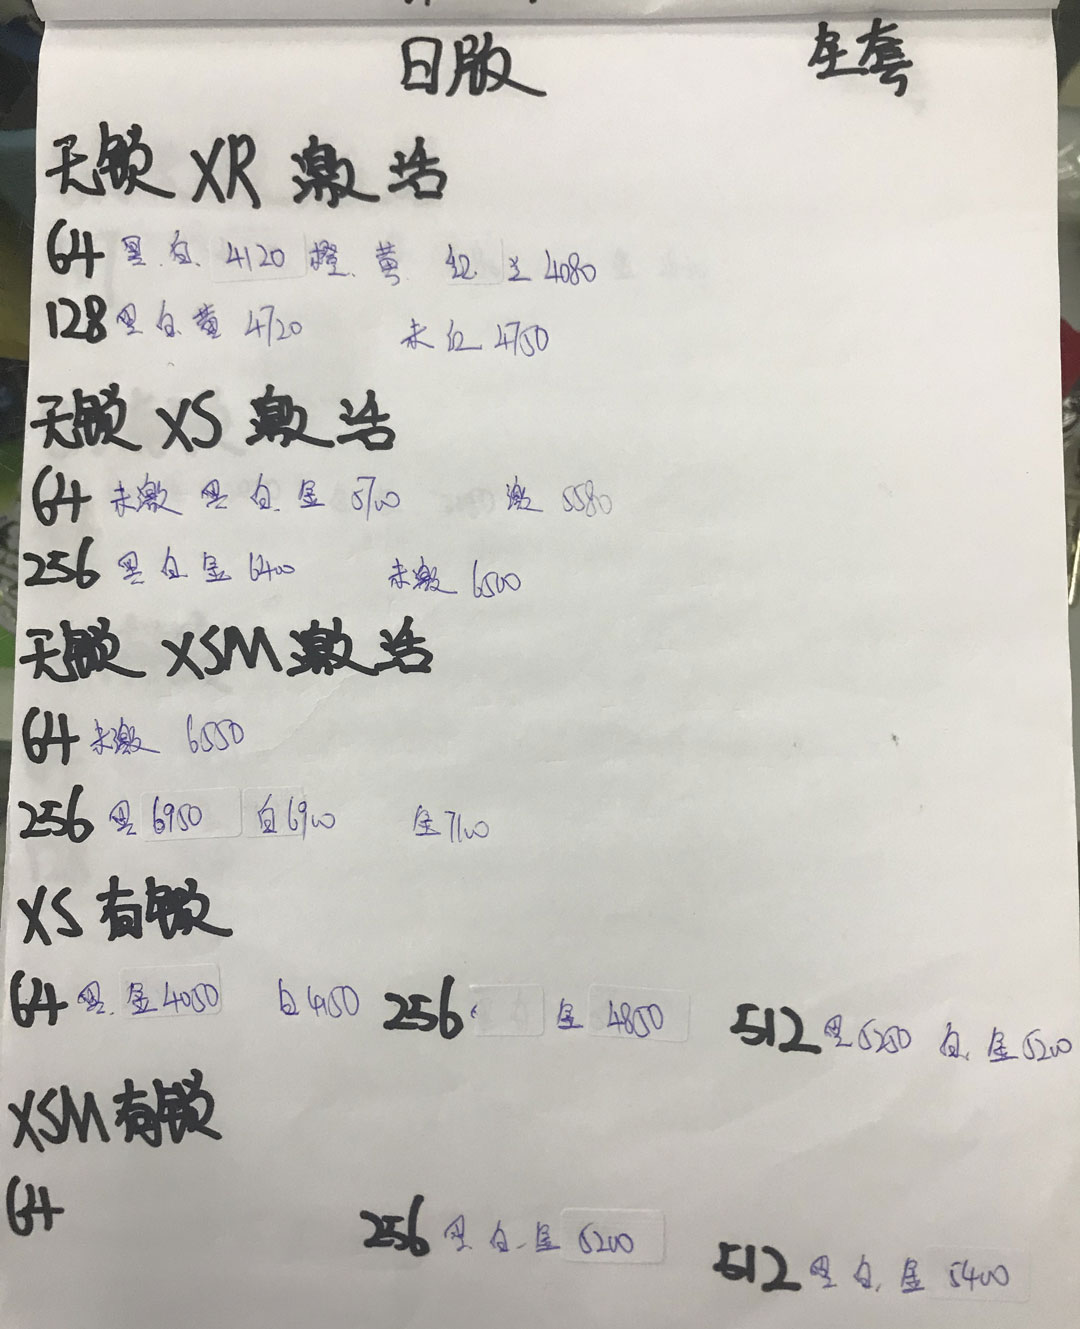 日版 全套
无锁 XR 激活
64 黑.白. 4120 橙. 黄 红 兰 4080
128 黑 白 黄 4720 未红 4750
无锁 XS 激活
64 未激 黑 白. 金 5700 激 5580
256 黑 白 金 6400 未激 6500
无锁 XSM 激活
64 未激 6550
256 黑 6950 白 6900 金 7100
XS 有锁
64 黑. 金 4050 白 4150 256 金 4850 512 黑 5250 白. 金 5200
XSM 有锁
64 256 黑 白. 金 5200 512 黑 白. 金 5400